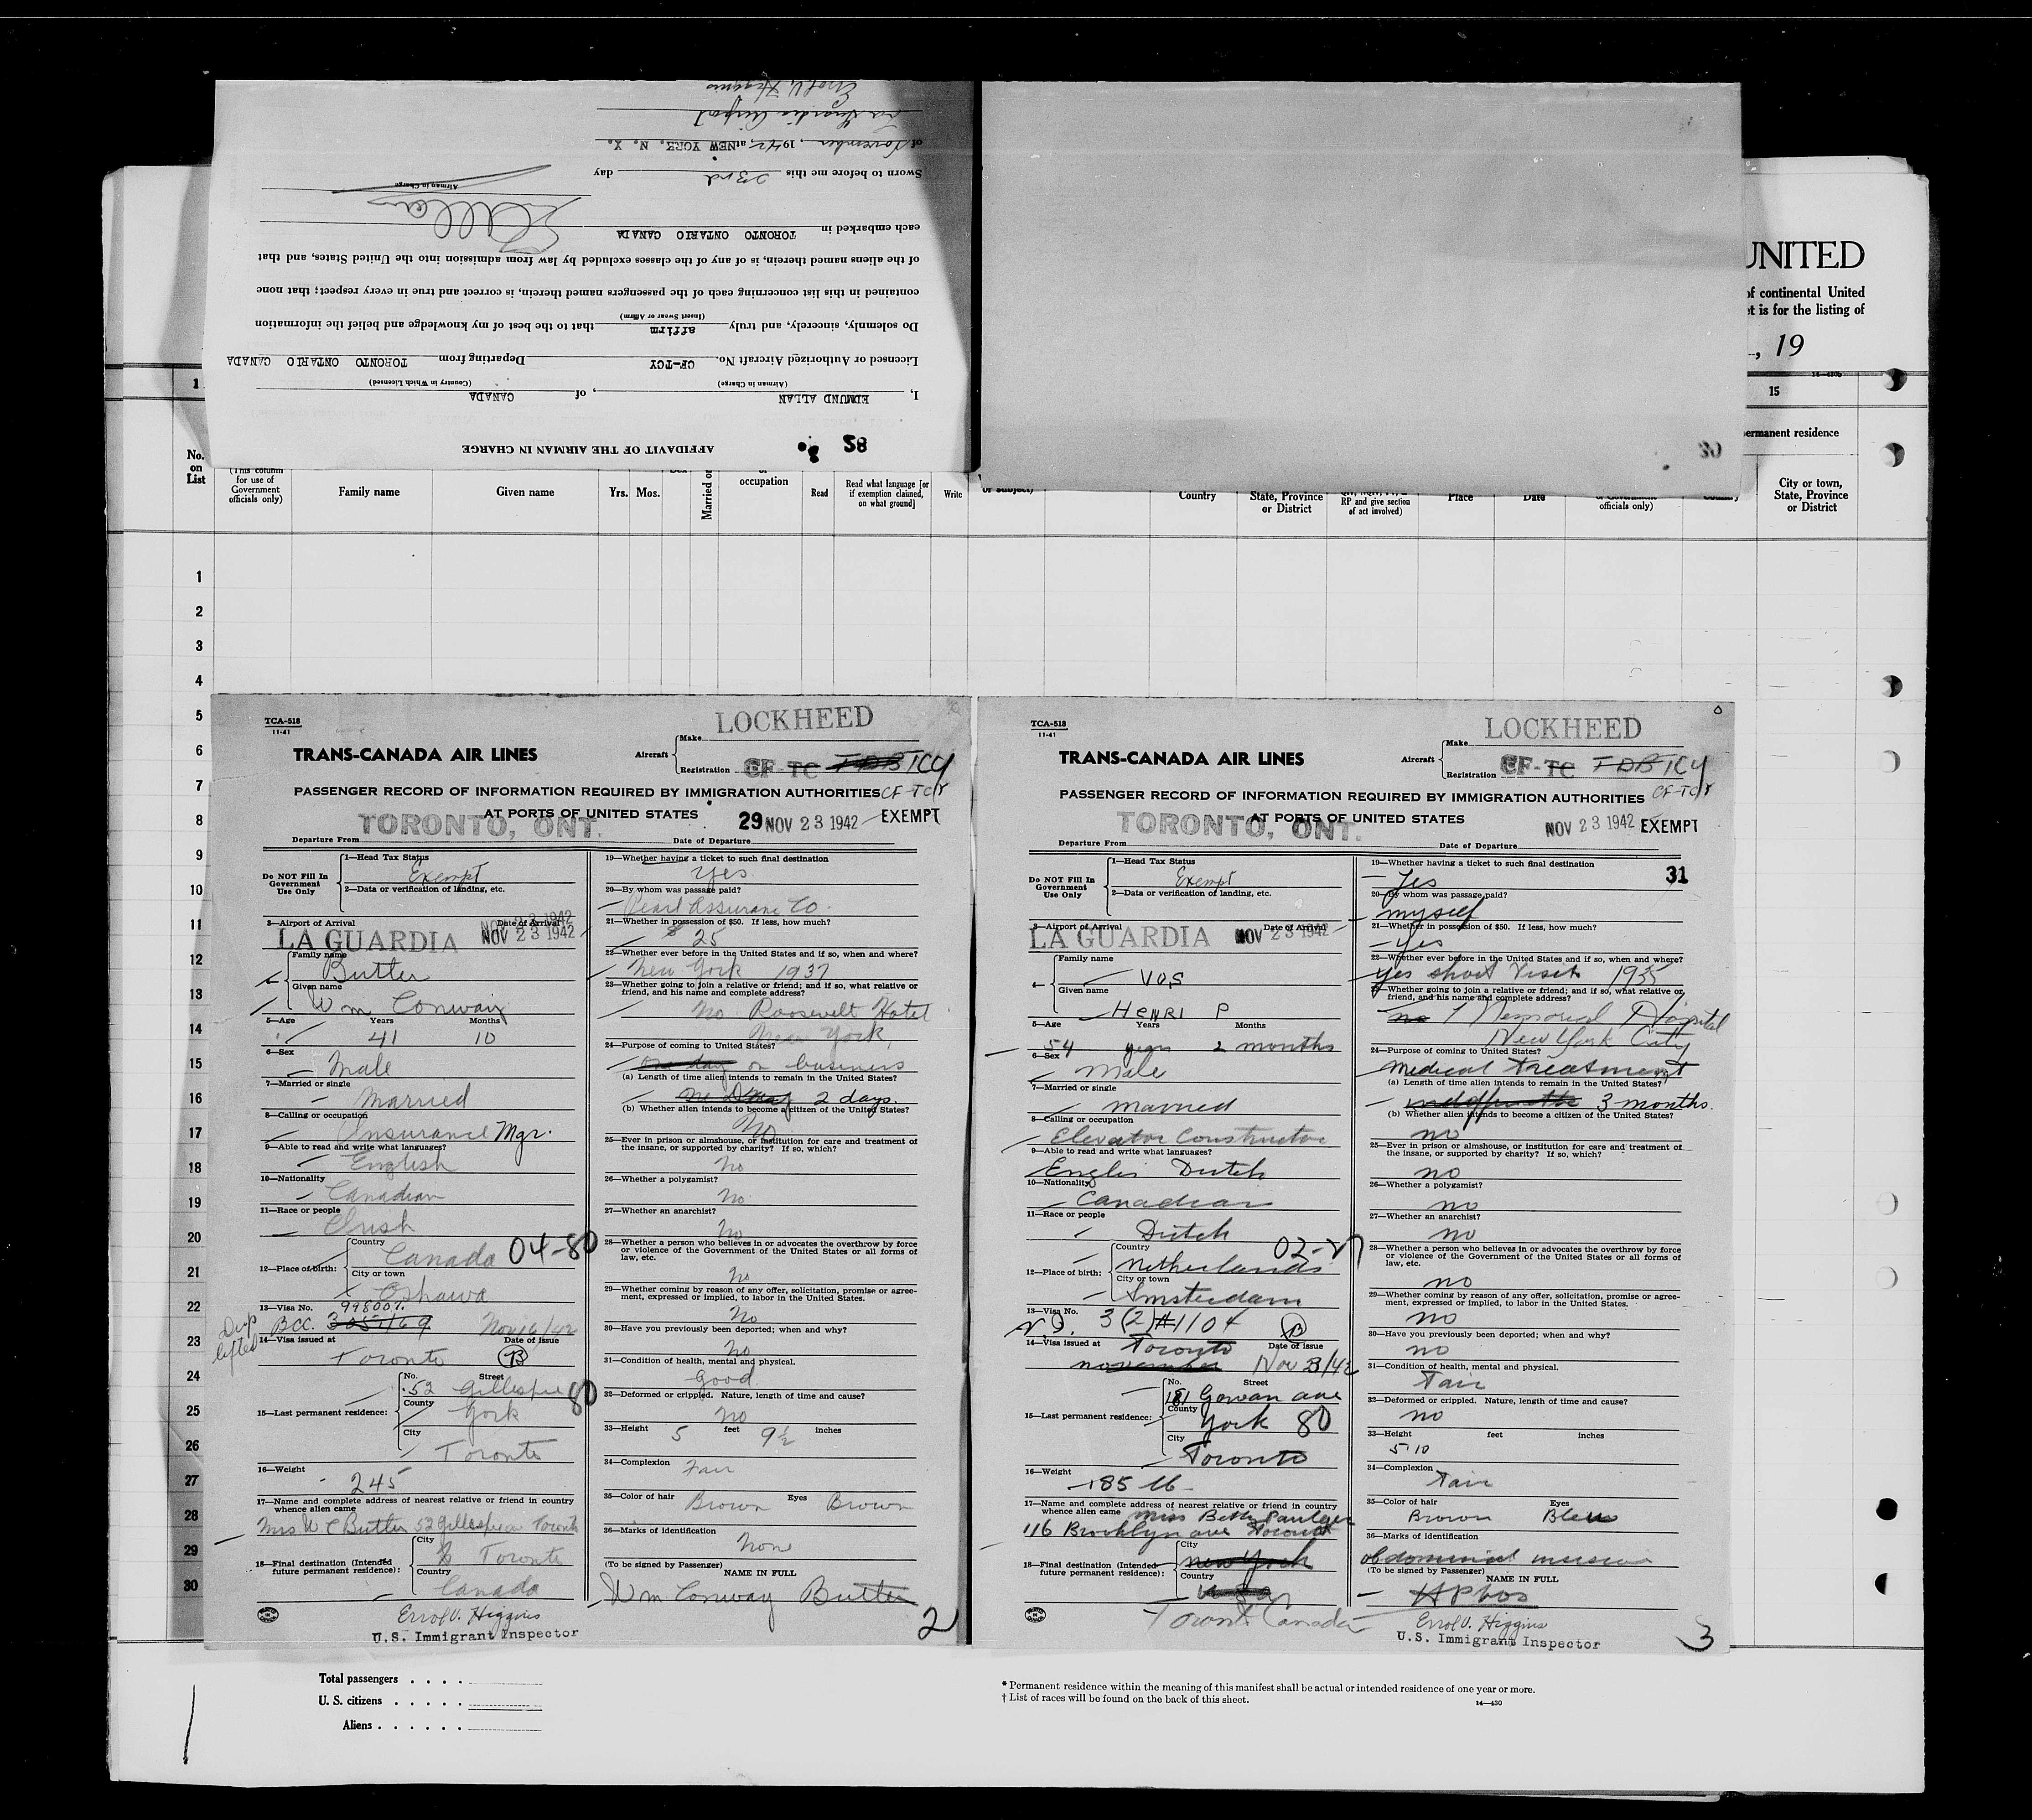 AFFIDAVIT OF THE AIRMAN IN CHARGE
I, EDMUND ALLAN, of CANADA
(Airman in Charge) (Country in Which Licensed)
Licensed or Authorized Aircraft No. CF-TCY Departing from TORONTO ONTARIO CANADA
Do solemnly, sincerely, and truly affirm that to the best of my knowledge and belief the information
(Insert Swear or Affirm)
contained in this list concerning each of the passengers named therein, is correct and true in every respect; that none
of the aliens named therein, is of any of the classes excluded by law from admission into the United States, and that
each embarked in TORONTO ONTARIO CANADA
E Allan
Airman in Charge
Sworn to before me this 23rd day
of November, 1942, at NEW YORK, N. Y.
La Guardia Airport
Errol V. Higgins
28
30
UNITED
of continental United
et is for the listing of
, 19
1
15
ermanent residence
No. on List
(This column for use of Government officials only)
Family name
Given name
Yrs. Mos.
Married or
occupation
Read
Read what language [or if exemption claimed, on what ground]
Write
or subject)
Country
State, Province or District
RP and give section of act involved)
Place
Date
officials only)
City or town, State, Province or District
1
2
3
4
5
6
7
8
9
10
11
12
13
14
15
16
17
18
19
20
21
22
23
24
25
26
27
28
29
30
TCA-518
11-41
LOCKHEED
TRANS-CANADA AIR LINES
Aircraft Make
Registration CF-TC FDB TCY
PASSENGER RECORD OF INFORMATION REQUIRED BY IMMIGRATION AUTHORITIES CF-TCY
AT PORTS OF UNITED STATES
TORONTO, ONT. 29 NOV 23 1942 EXEMPT
Departure From Date of Departure
Do NOT Fill In Government Use Only
1—Head Tax Status
Exempt
2—Data or verification of landing, etc.
3—Airport of Arrival Date of Arrival
LA GUARDIA NOV 23 1942
NOV 23 1942
4— Family name
Butler
Given name
Wm Conway
5—Age Years Months
41 10
6—Sex
Male
7—Married or single
Married
8—Calling or occupation
Insurance Mgr.
9—Able to read and write what languages?
English
10—Nationality
Canadian
11—Race or people
Irish
12—Place of birth: Country
Canada 04-80
City or town
Oshawa
13—Visa No. 998007.
BCC. 3051169 Nov 16/42
Drip lifted
14—Visa issued at Date of issue
Toronto B
15—Last permanent residence: No. Street
52 Gillespie 80
County
York
City
Toronto
16—Weight
245
17—Name and complete address of nearest relative or friend in country whence alien came
Mrs W C Butler 52 Gillespie av Toronto
18—Final destination (Intended future permanent residence): City
Toronto
Country
Canada
Errol V. Higgins
U.S. Immigrant Inspector
19—Whether having a ticket to such final destination
Yes
20—By whom was passage paid?
Pearl Assurance Co.
21—Whether in possession of $50. If less, how much?
$25
22—Whether ever before in the United States and if so, when and where?
New York 1937
23—Whether going to join a relative or friend; and if so, what relative or friend, and his name and complete address?
No Roosevelt Hotel
New York,
24—Purpose of coming to United States?
One day on business
(a) Length of time alien intends to remain in the United States?
2 days.
(b) Whether alien intends to become a citizen of the United States?
No
25—Ever in prison or almshouse, or institution for care and treatment of the insane, or supported by charity? If so, which?
No
26—Whether a polygamist?
No
27—Whether an anarchist?
No
28—Whether a person who believes in or advocates the overthrow by force or violence of the Government of the United States or all forms of law, etc.
No
29—Whether coming by reason of any offer, solicitation, promise or agreement, expressed or implied, to labor in the United States.
No
30—Have you previously been deported; when and why?
No
31—Condition of health, mental and physical.
Good
32—Deformed or crippled. Nature, length of time and cause?
No
33—Height 5 feet 9½ inches
34—Complexion Fair
35—Color of hair Brown Eyes Brown
36—Marks of identification
None
(To be signed by Passenger) NAME IN FULL
Wm Conway Butler
2
TCA-518
11-41
LOCKHEED
TRANS-CANADA AIR LINES
Aircraft Make
Registration CF-TC FDB TCY
PASSENGER RECORD OF INFORMATION REQUIRED BY IMMIGRATION AUTHORITIES CF-TCY
AT PORTS OF UNITED STATES
TORONTO, ONT. NOV 23 1942 EXEMPT
Departure From Date of Departure
31
Do NOT Fill In Government Use Only
1—Head Tax Status
Exempt
2—Data or verification of landing, etc.
3—Airport of Arrival Date of Arrival
LA GUARDIA NOV 23 1942
4— Family name
VOS
Given name
HENRI P
5—Age Years Months
54 years 2 months
6—Sex
Male
7—Married or single
married
8—Calling or occupation
Elevator Constructor
9—Able to read and write what languages?
Englis Dutch
10—Nationality
Canadian
11—Race or people
Dutch
12—Place of birth: Country
Netherlands
City or town
Amsterdam
13—Visa No. 3(2) #1104 B
14—Visa issued at Toronto Date of issue
november Nov
15—Last permanent residence: No. Street
181 Gowan ave
County
York 80
City
Toronto
16—Weight
185 lb
17—Name and complete address of nearest relative or friend in country whence alien came Miss Betty
116 Brooklyn ave Toronto
18—Final destination (Intended future permanent residence): City
new york
Country
Toront Canada
19—Whether having a ticket to such final destination
Yes
20—By whom was passage paid?
myself
21—Whether in possession of $50. If less, how much?
yes
22—Whether ever before in the United States and if so, when and where?
yes short Visit 1935
23—Whether going to join a relative or friend; and if so, what relative or friend, and his name and complete address?
no Memorial Hospital
New York City
24—Purpose of coming to United States?
Medical treatment
(a) Length of time alien intends to remain in the United States?
3 months.
(b) Whether alien intends to become a citizen of the United States?
no
25—Ever in prison or almshouse, or institution for care and treatment of the insane, or supported by charity? If so, which?
no
26—Whether a polygamist?
no
27—Whether an anarchist?
no
28—Whether a person who believes in or advocates the overthrow by force or violence of the Government of the United States or all forms of law, etc.
no
29—Whether coming by reason of any offer, solicitation, promise or agreement, expressed or implied, to labor in the United States.
no
30—Have you previously been deported; when and why?
no
31—Condition of health, mental and physical.
Fair
32—Deformed or crippled. Nature, length of time and cause?
no
33—Height feet inches
5 10
34—Complexion
Fair
35—Color of hair Eyes
Brown Bleu
36—Marks of identification
(To be signed by Passenger) NAME IN FULL
HP Vos
Errol V. Higgins
U.S. Immigrant Inspector
3
Total passengers . . . .
U. S. citizens . . . . .
Aliens . . . . . .
* Permanent residence within the meaning of this manifest shall be actual or intended residence of one year or more.
† List of races will be found on the back of this sheet. 14—430